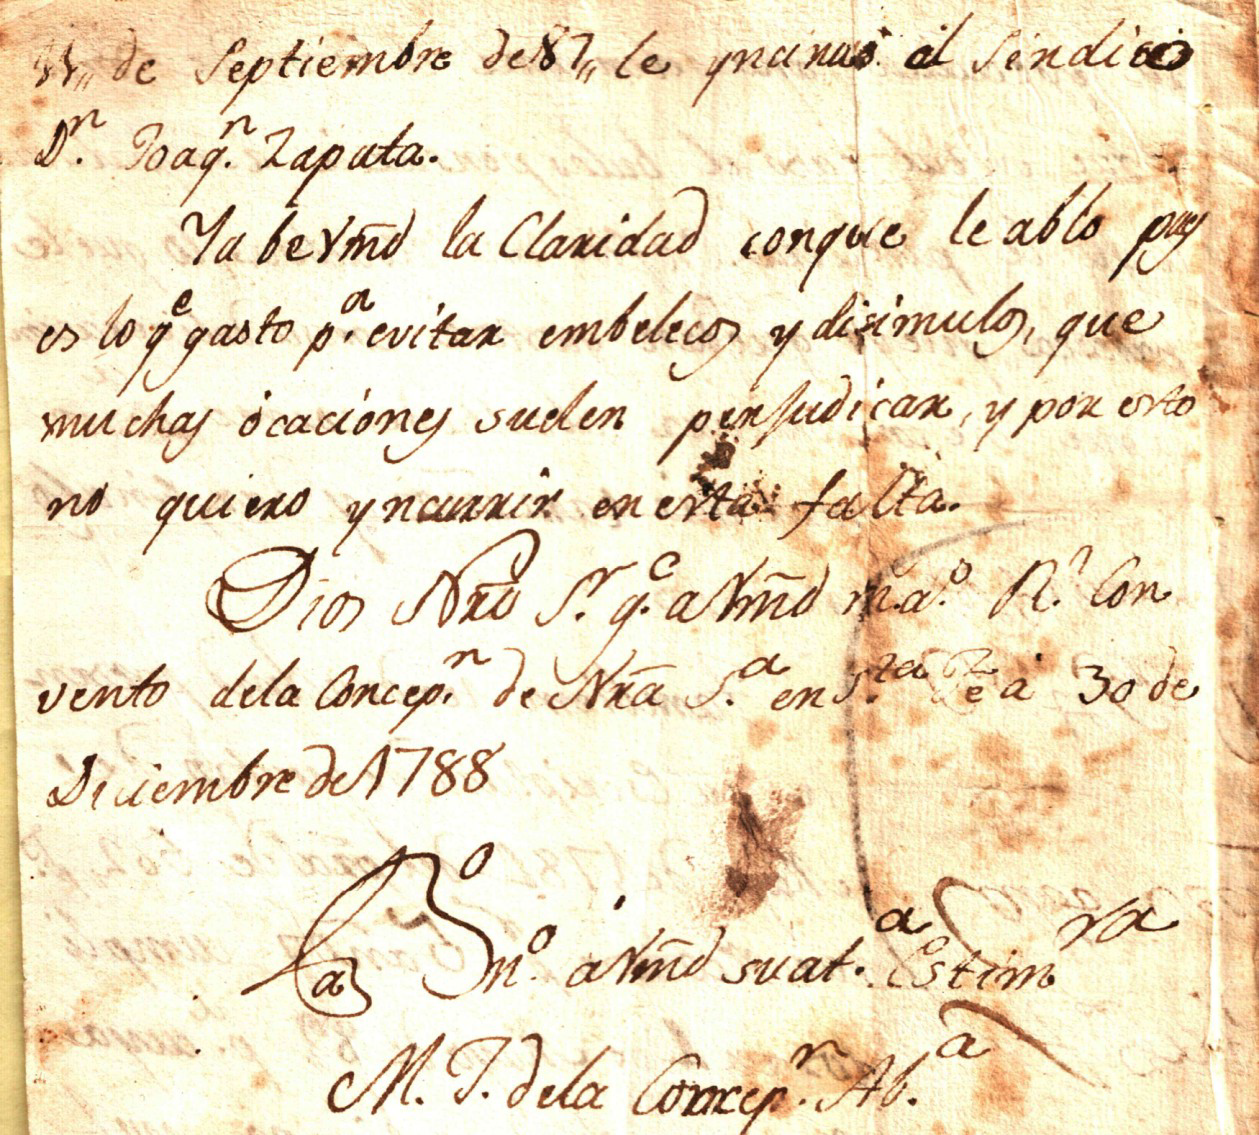 11,, de Septiembre de 87,, le yncinué al Sindico
Dn. Joaqn. Zapata.
Ya be Vmd la Claridad conque le ablo pues
es lo qe gasto pa. evitar embelecos y disimulos, que
muchas ócaciones suelen perjudicar, y por esto
no quiero yncurrir en esta falta.
Dios Nro Sr. ge. a Vmd ms. as. Rl. Con
vento dela Concepn. de Nra Sa. en Sta Fe á 30 de
Diciembre de 1788
mo. a Vmd su at.a Estim ra
M. J. dela Concepn. Aba.